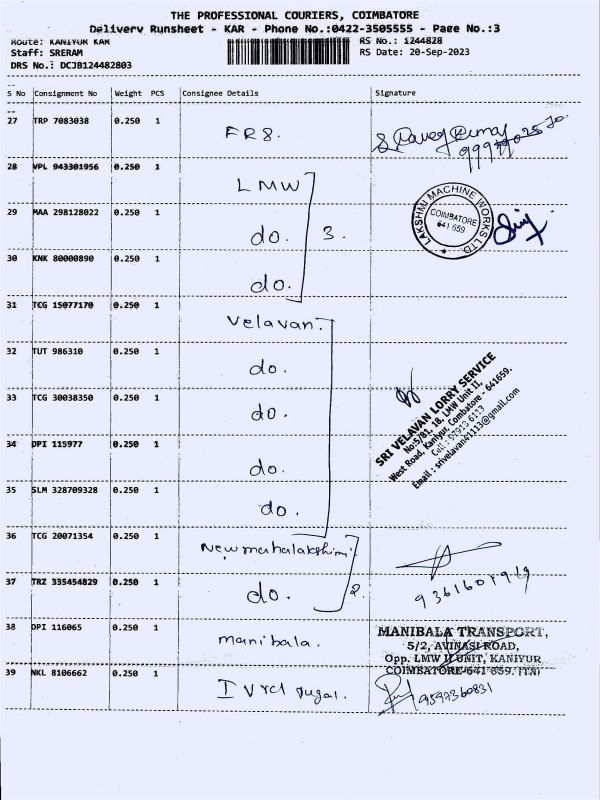 THE PROFESSIONAL COURIERS, COIMBATORE
Delivery Runsheet - KAR - Phone No.:0422-3505555 - Page No.:3
Route: KANIYUR KAR RS No.: 1244828
Staff: SRERAM RS Date: 20-Sep-2023
DRS No.: DCJB124482803
S No Consignment No Weight PCS Consignee Details Signature
27 TRP 7083038 0.250 1 FRS.
28 VPL 943301956 0.250 1 LMW
29 MAA 298128022 0.250 1 do. 3.
LAKSHMI MACHINE WORKS LTD.
COIMBATORE
641 659
30 KNK 80000890 0.250 1 do.
31 TCG 15077170 0.250 1 Velavan.
32 TUT 986310 0.250 1 do.
33 TCG 30038350 0.250 1 do.
SRI VELAVAN LORRY SERVICE
No:5/81, 18, LMW Unit II,
West Road, Kaniyur, Coimbatore - 641659.
Cell : 57913 6113
Email : srivelavan41113@gmail.com
34 DPI 115977 0.250 1 do.
35 SLM 328709328 0.250 1 do.
36 TCG 20071354 0.250 1 New mahalakshmi
37 TRZ 335454829 0.250 1 do. 2.
9361601919
38 DPI 116065 0.250 1 manibala.
MANIBALA TRANSPORT,
5/2, AVINASI ROAD,
Opp. LMW II UNIT, KANIYUR
COIMBATORE-641 659. (TN)
39 NKL 8106662 0.250 1 I
9597360831